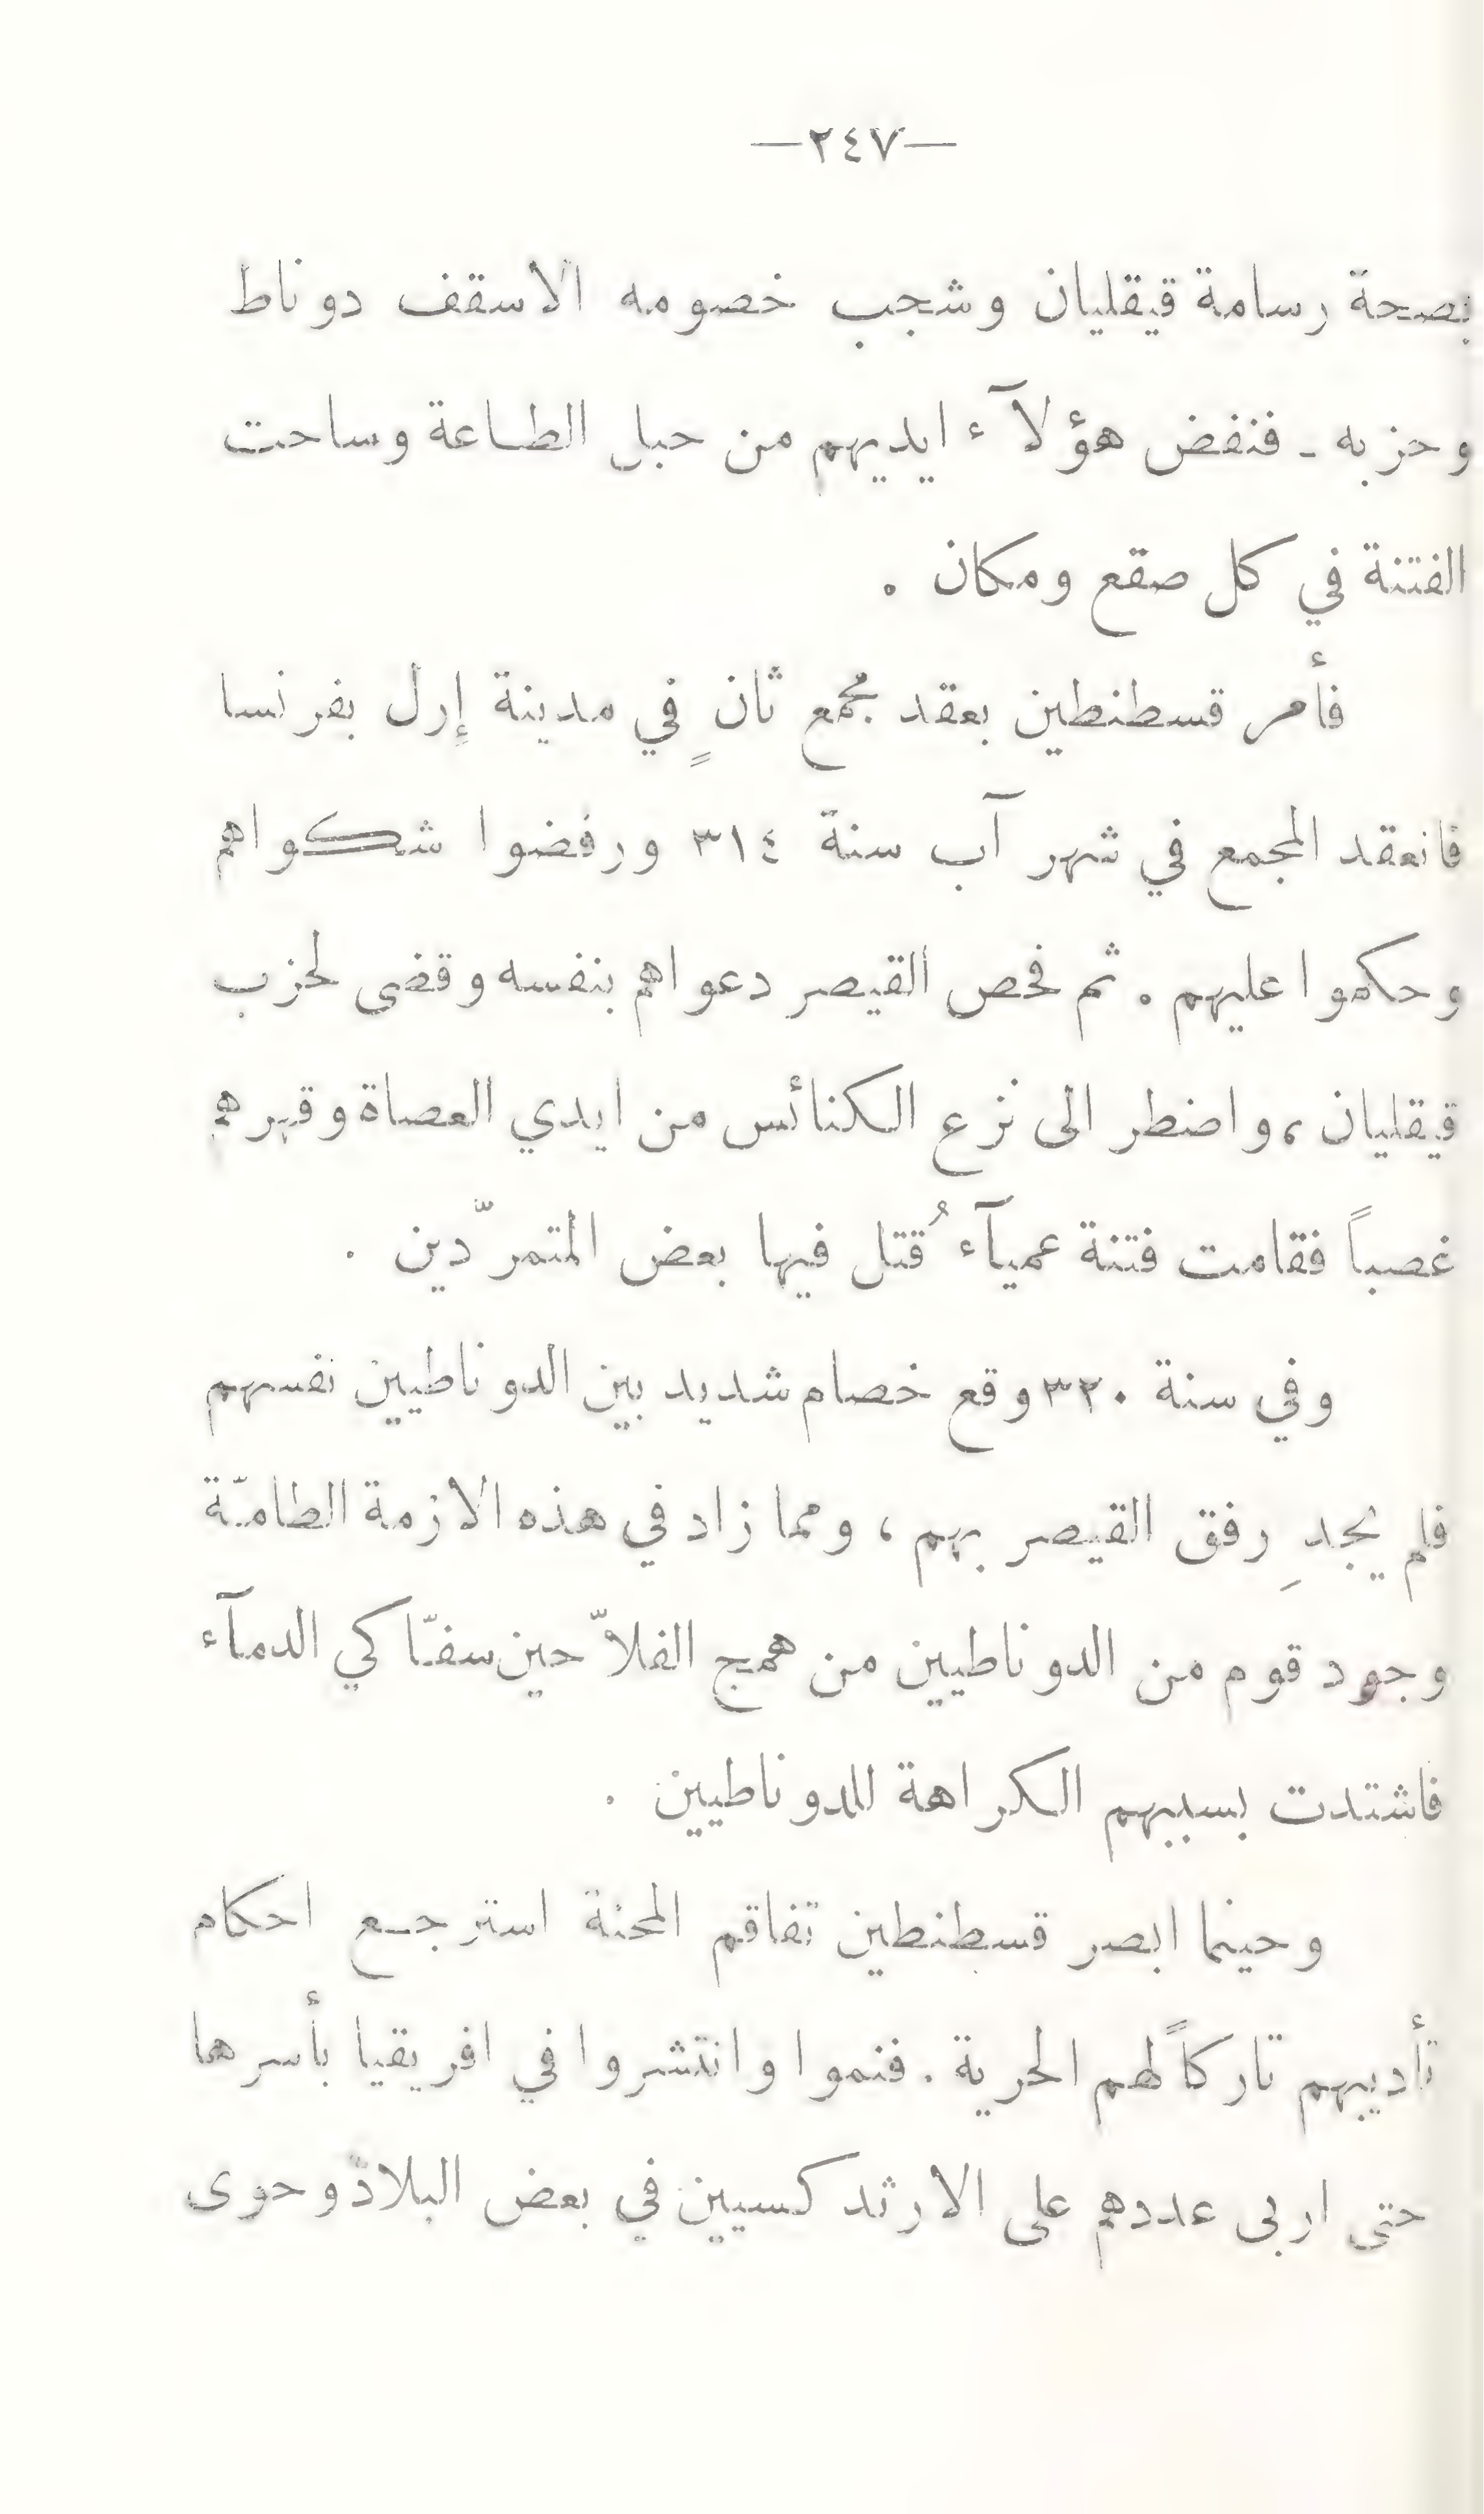 —٢٤٧—
بصحة رسامة قيقليان وشجب خصومه الاسقف دوناط
وحزبه ـ فنفض هؤلآء ايديهم من حبل الطاعة وساحت
الفتنة في كل صقع ومكان .
فأمر قسطنطين بعقد مجمع ثانٍ في مدينة إرل بفرنسا
فانعقد المجمع في شهر آب سنة ٣١٤ ورفضوا شكواهم
وحكموا عليهم . ثم فحص القيصر دعواهم بنفسه وقضى لحزب
قيقليان ، واضطر الى نزع الكنائس من ايدي العصاة وقهرهم
غصباً فقامت فتنة عميآء قُتل فيها بعض المتمرّدين .
وفي سنة ٣٢٠ وقع خصام شديد بين الدوناطيين نفسهم
فلم يجدِ رفق القيصر بهم ، ومما زاد في هذه الازمة الطامّة
وجود قوم من الدوناطيين من همج الفلاّحين سفّاكي الدمآء
فاشتدت بسببهم الكراهة للدوناطيين .
وحينما ابصر قسطنطين تفاقم المحنة استرجع احكام
تأديبهم تاركاً لهم الحرية . فنموا وانتشروا في افريقيا بأسرها
حتى اربى عددهم على الارثدكسيين في بعض البلاد وحوى